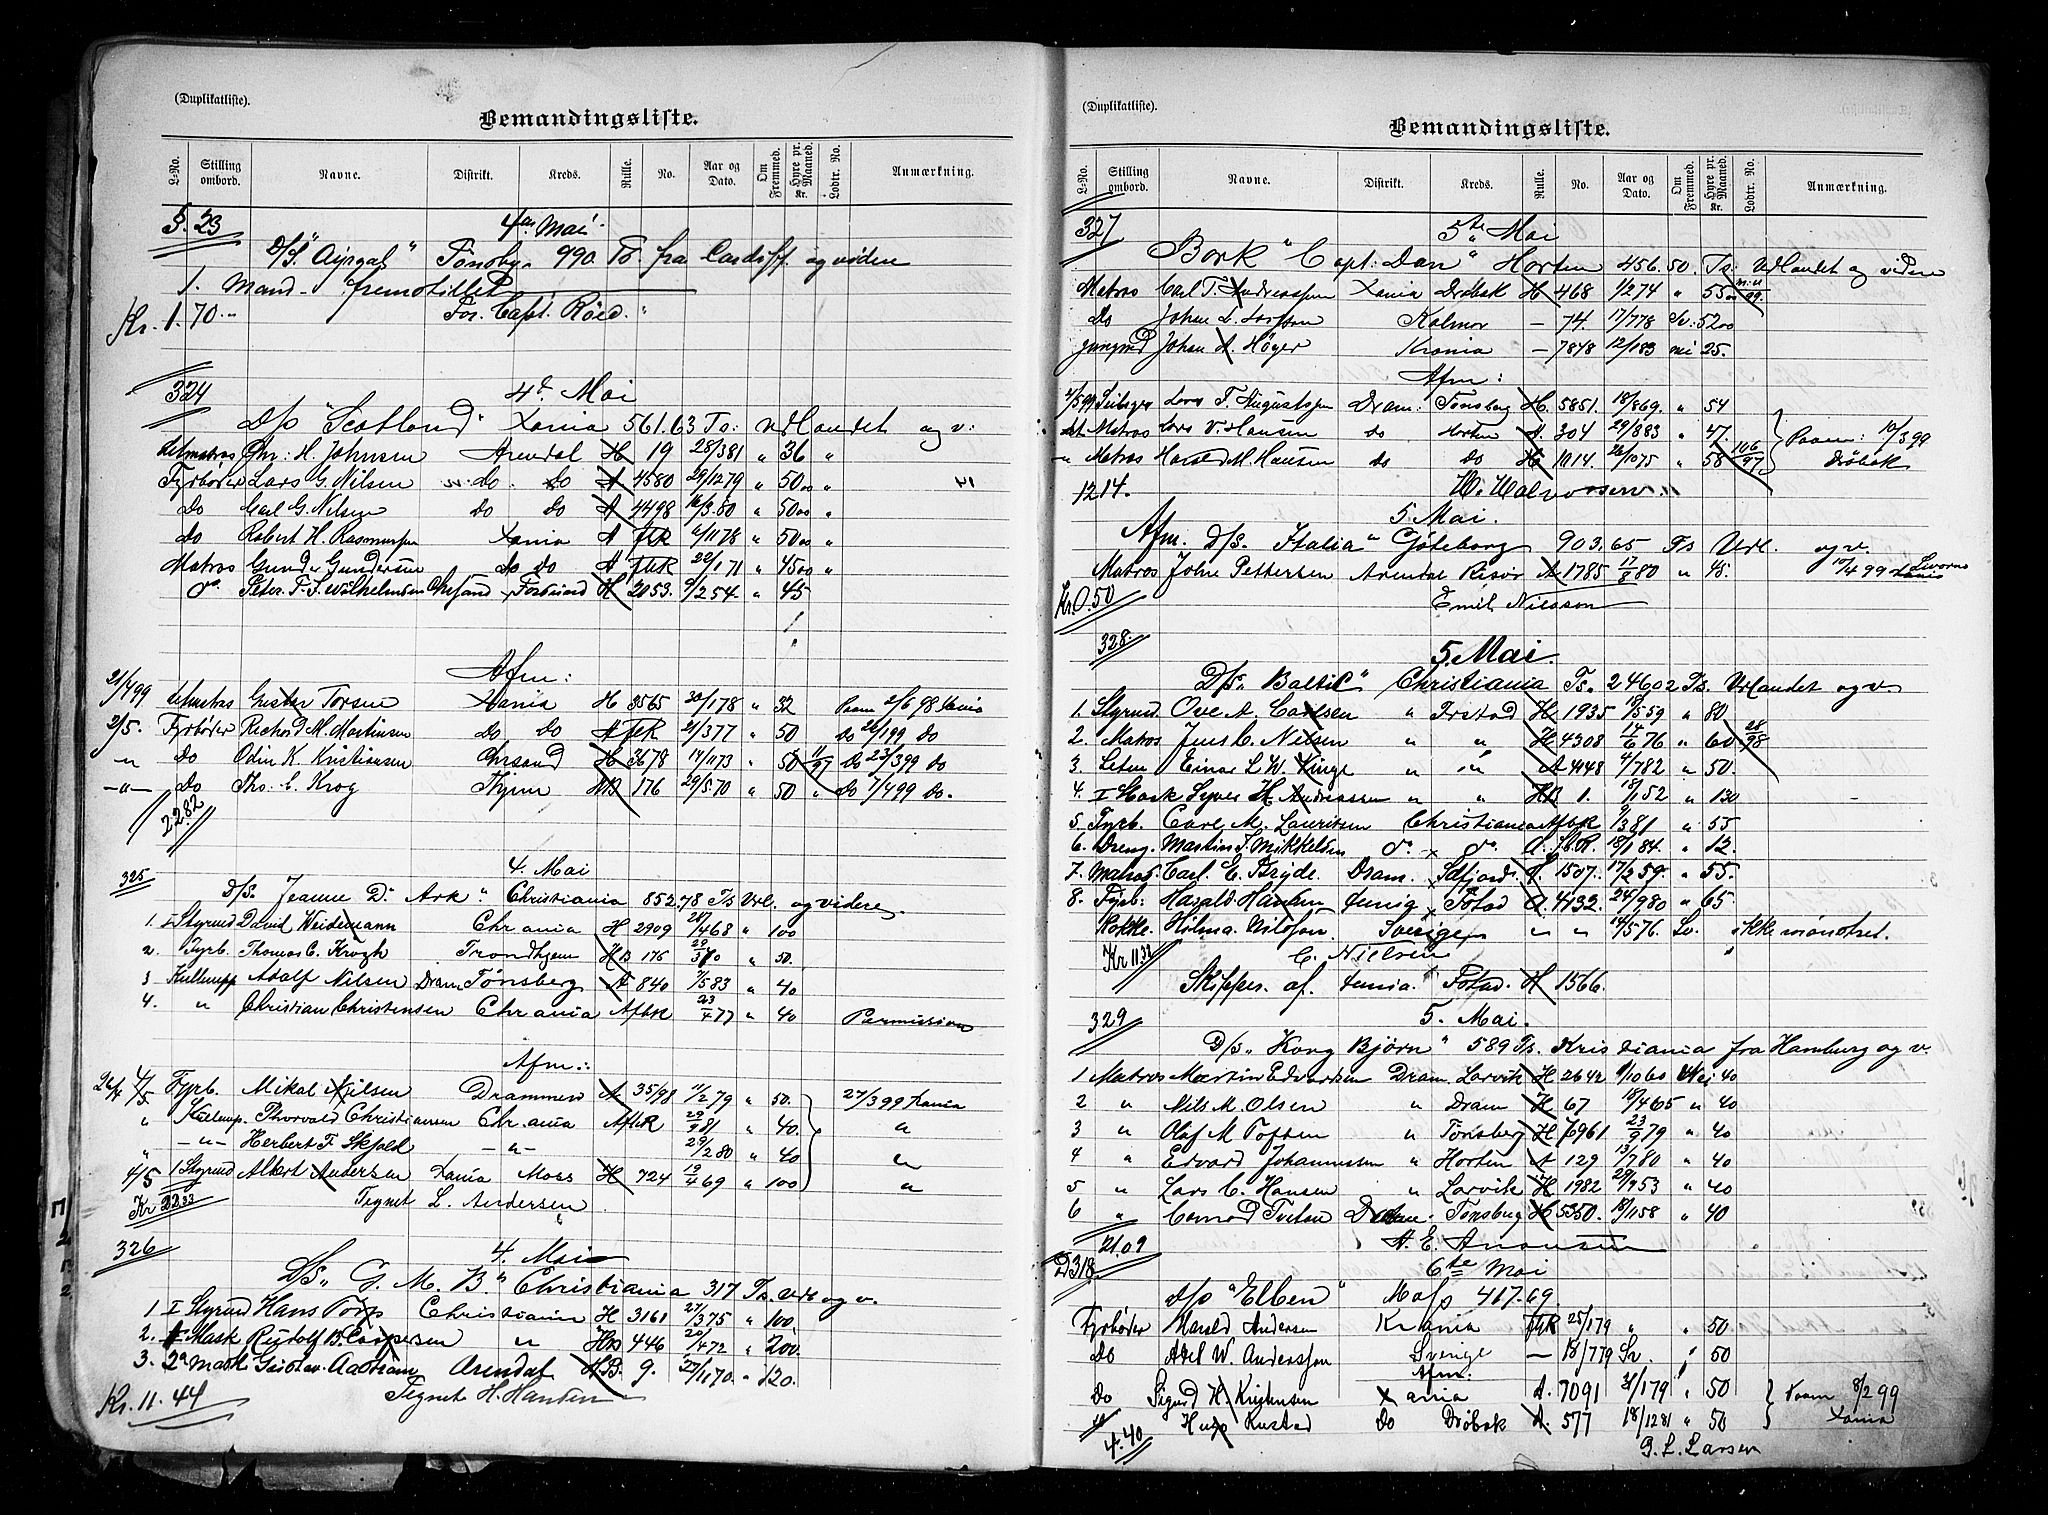 (Duplikatliste).
Bemandingsliste.
L-No. Stilling ombord. Navne. Distrikt. Kreds. Rulle. No. Aar og Dato. Om Fremmed. Hyre pr. Maaned. Kr. Lodtr. No. Anmærkning.
§. 23 4de Mai
D/S " Tönsby. 990 Ts fra Cardiff og videre
1. Mand fremstillet
Kr. 1.70 For Capt. Röed.
324 4d Mai
D/s "Scotland" Xania 561.63 Ts: Udlandet og v:
Letmatros Chr: H. Johnsen Arendal H 19 28/381 " 36 "
Fyrböder Lars G. Nilsen do do A 4580 29/1279 " 5000 "
Do Carl G. Nilsen do do A 4498 16/380 " 5000 "
do Robert H. Rasmussen Xania A flR 6/1178 " 5000 "
Matros Gunder Gundersen do do A flR 22/171 " 4500 "
do Peter T. S. Wilhelmsen Chrsand Farsund H 2053. 9/254. " 45
Afm:
21/499 Letmatros Torsen Xania H 3565 30/178 " 32 Paam 2/6 98 Xania
2/5. Fyrböder Richard M. Martinsen do do A flR 21/377 " 50 do 26/199 do
-"- Do Odin K. Kristiansen Chrsand H 3678 14/1173 " 50 11/97 do 23/399 do
-"- Do Ths. C. Krog Thjem HB 176 29/570 " 50 " do 7/499 do.
22.82
325 4. Mai
D/s. Jeanne D. Ark." Christiania 852.78 Ts Udl. og videre.
1. I Styrmd David Weidemann Chr.ania H 2909 28/468 " 100
2. Fyrb. Thomas C. Krogh Trondhjem HB 176 29/570 " 50.
3 Kullempp Adolf Nilsen Dram Tönsberg A 840 7/583 " 40
4. " Christian Christensen Chr.ania AflR 23/477 " 40 Permission
Afm.:
26/4 4/5 Fyrb. Mikal Nilsen Drammen A 35/98 11/279 " 50. 27/399 Xania
" Kullemp. Thorvald Christiansen Chr.ania AflR 29/981 " 40. "
" -"- Herbert F. Skjold -"- 29/280 " 40 "
4/5 1 Styrmd Albert Andersen Xania Moss H 724 19/469 " 100 "
Kr 22.33 Tegnet L. Andersen
326 4. Mai
D/s. G. M. B." Christiania 317 Ts. Udl og v.
1. I Styrmd Hans Torp Christiania H 3161 27/375 " 100.
2. I Mask Rudolf B. Caspersen " HB 446 20/472 " 200.
3. 2n Mask Gustav Arendal HB. 9. 27/1170. " 120.
Kr. 11.44 Tegnet H. Hansen
(Duplikatliste).
Bemandingsliste.
L-No. Stilling ombord. Navne. Distrikt. Kreds. Rulle. No. Aar og Dato. Om Fremmed. Hyre pr. Maaned. Kr. Lodtr. No. Anmærkning.
327 5te Mai
Bark "Capt: Dan" Horten 456.50 Ts: Udlandet og videre
Matros Carl T. Andreassen Xania Dröbak H 468 1/274 " 5500
Do Johan L. Larsson Kalmar — 74. 17/778 Sv: 5200
Jungmd Johan A. Höyer Krania — 7848 12/183 nei 25.
Afm:
2/599 Lars T. Augustsen Dram: Tönsberg H. 5851. 18/869. " 54
dt. Matros Lars V. Hansen do Horten A. 304 29/883 " 47. Paam: 10/399
-"- Matros Harald M. Hansen do Do H 1014. 26/1075 " 58 106/97 Dröbak
12.14. W. Halvorsen
5. Mai.
Afm. D/s. Italia" Göteborg 903.65 Ts Udl. og v.
Matros John Pettersen Arendal Risör A 1785 17/880 " 45. 10/499 Livorno
Kr. 0.50 Emil Nilsson
328. 5. Mai.
D/s" Baltic" Christiania Ts. 246.02 Ts. Udlandet og v
1. Styrmd. Ove A. Carlsen " Frstad H 1935 19/559 " 80
2. Matros Jens C. Nilsen " " H 4308 14/676 " 60 28/98
3. Letm Einar L. W. Kinge " " A 4148 4/782 " 50.
4. I Mask Syver H. Andreassen " " HB 1. 18/152 " 130
5. Fyrb. Carl M. Lauritsen Christiania AflR 9/381 " 55
6. Dreng. Martin T. Mikkelsen do do A. flR. 18/184. " 12.
7. Matros. Carl E. Bryde. Dram. Sdfjord. A. 1507. 17/259. " 55.
8. Fyrb: Harald Hansen Xania Fstad A. 4132. 24/980 " 65.
Kokke. Hilma. Nilsson. Sverige " " 14/576. Sv. " Ikke mönstret.
Kr 11.32 C. Nielsen
Skipper. af. Xania. Fstad. H 1566.
329 5. Mai.
D/s" Kong Björn" 589 Ts. Kristiania fra Hamburg og v.
1 Matros Martin Edvardsen Dram. Larvik H 2642 9/1060 Nei 40
2 " Nils M. Olsen " Dram H 67 18/465 " 40
3 " Olaf M Toften " Tönsberg H 6961 23/979 " 40
4 " Edvard Johannessen " Horten A 129 13/780 " 40
5 " Lars C. Hansen " Larvik H 1982 29/953 " 40
6 " Conrad Tveten Dram. Tönsberg H 5350. 18/1158 " 40
21.09 A. E.
D 318. 6te Mai
D/s "Elben" Moss 467.69
Fyrböder Harald Andersen Krania flR 25/179 " " 50
Do Axel W. Andersson Sverige — 18/779 Sv. " 50
Afm.
Do Sigurd H. Kristensen Xania A. 7091 31/179 " 50 Paam 8/299
do Hans Rustad Do Dröbak A. 577 18/1281 " 50 Xania
4.40 G. L. Larsen